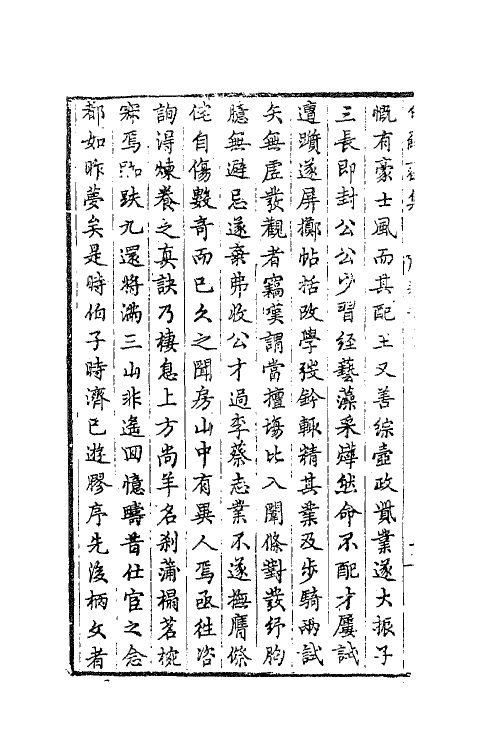 慨有豪士風而其配王又善綜壼政貲業遂大振子
三長即封公公少習經藝藻采燁然命不配才屢試
邅躓遂屏擲帖括改學弢鈐輒精其業及步騎兩試
矢無虛發觀者竊嘆謂當擅塲比入闈條對發紓胸
臆無避忌遂棄弗收公才過李蔡志業不遂撫膺傺
侘自傷數奇而已久之聞房山中有異人焉亟徃咨
詢得煉養之真訣乃棲息上方尚羊名刹蒲榻茗椀
寐焉跏趺九還將滿三山非遙囬憶疇昔仕宦之念
都如昨夢矣是時伯子時濟已遊膠序先後柄文者